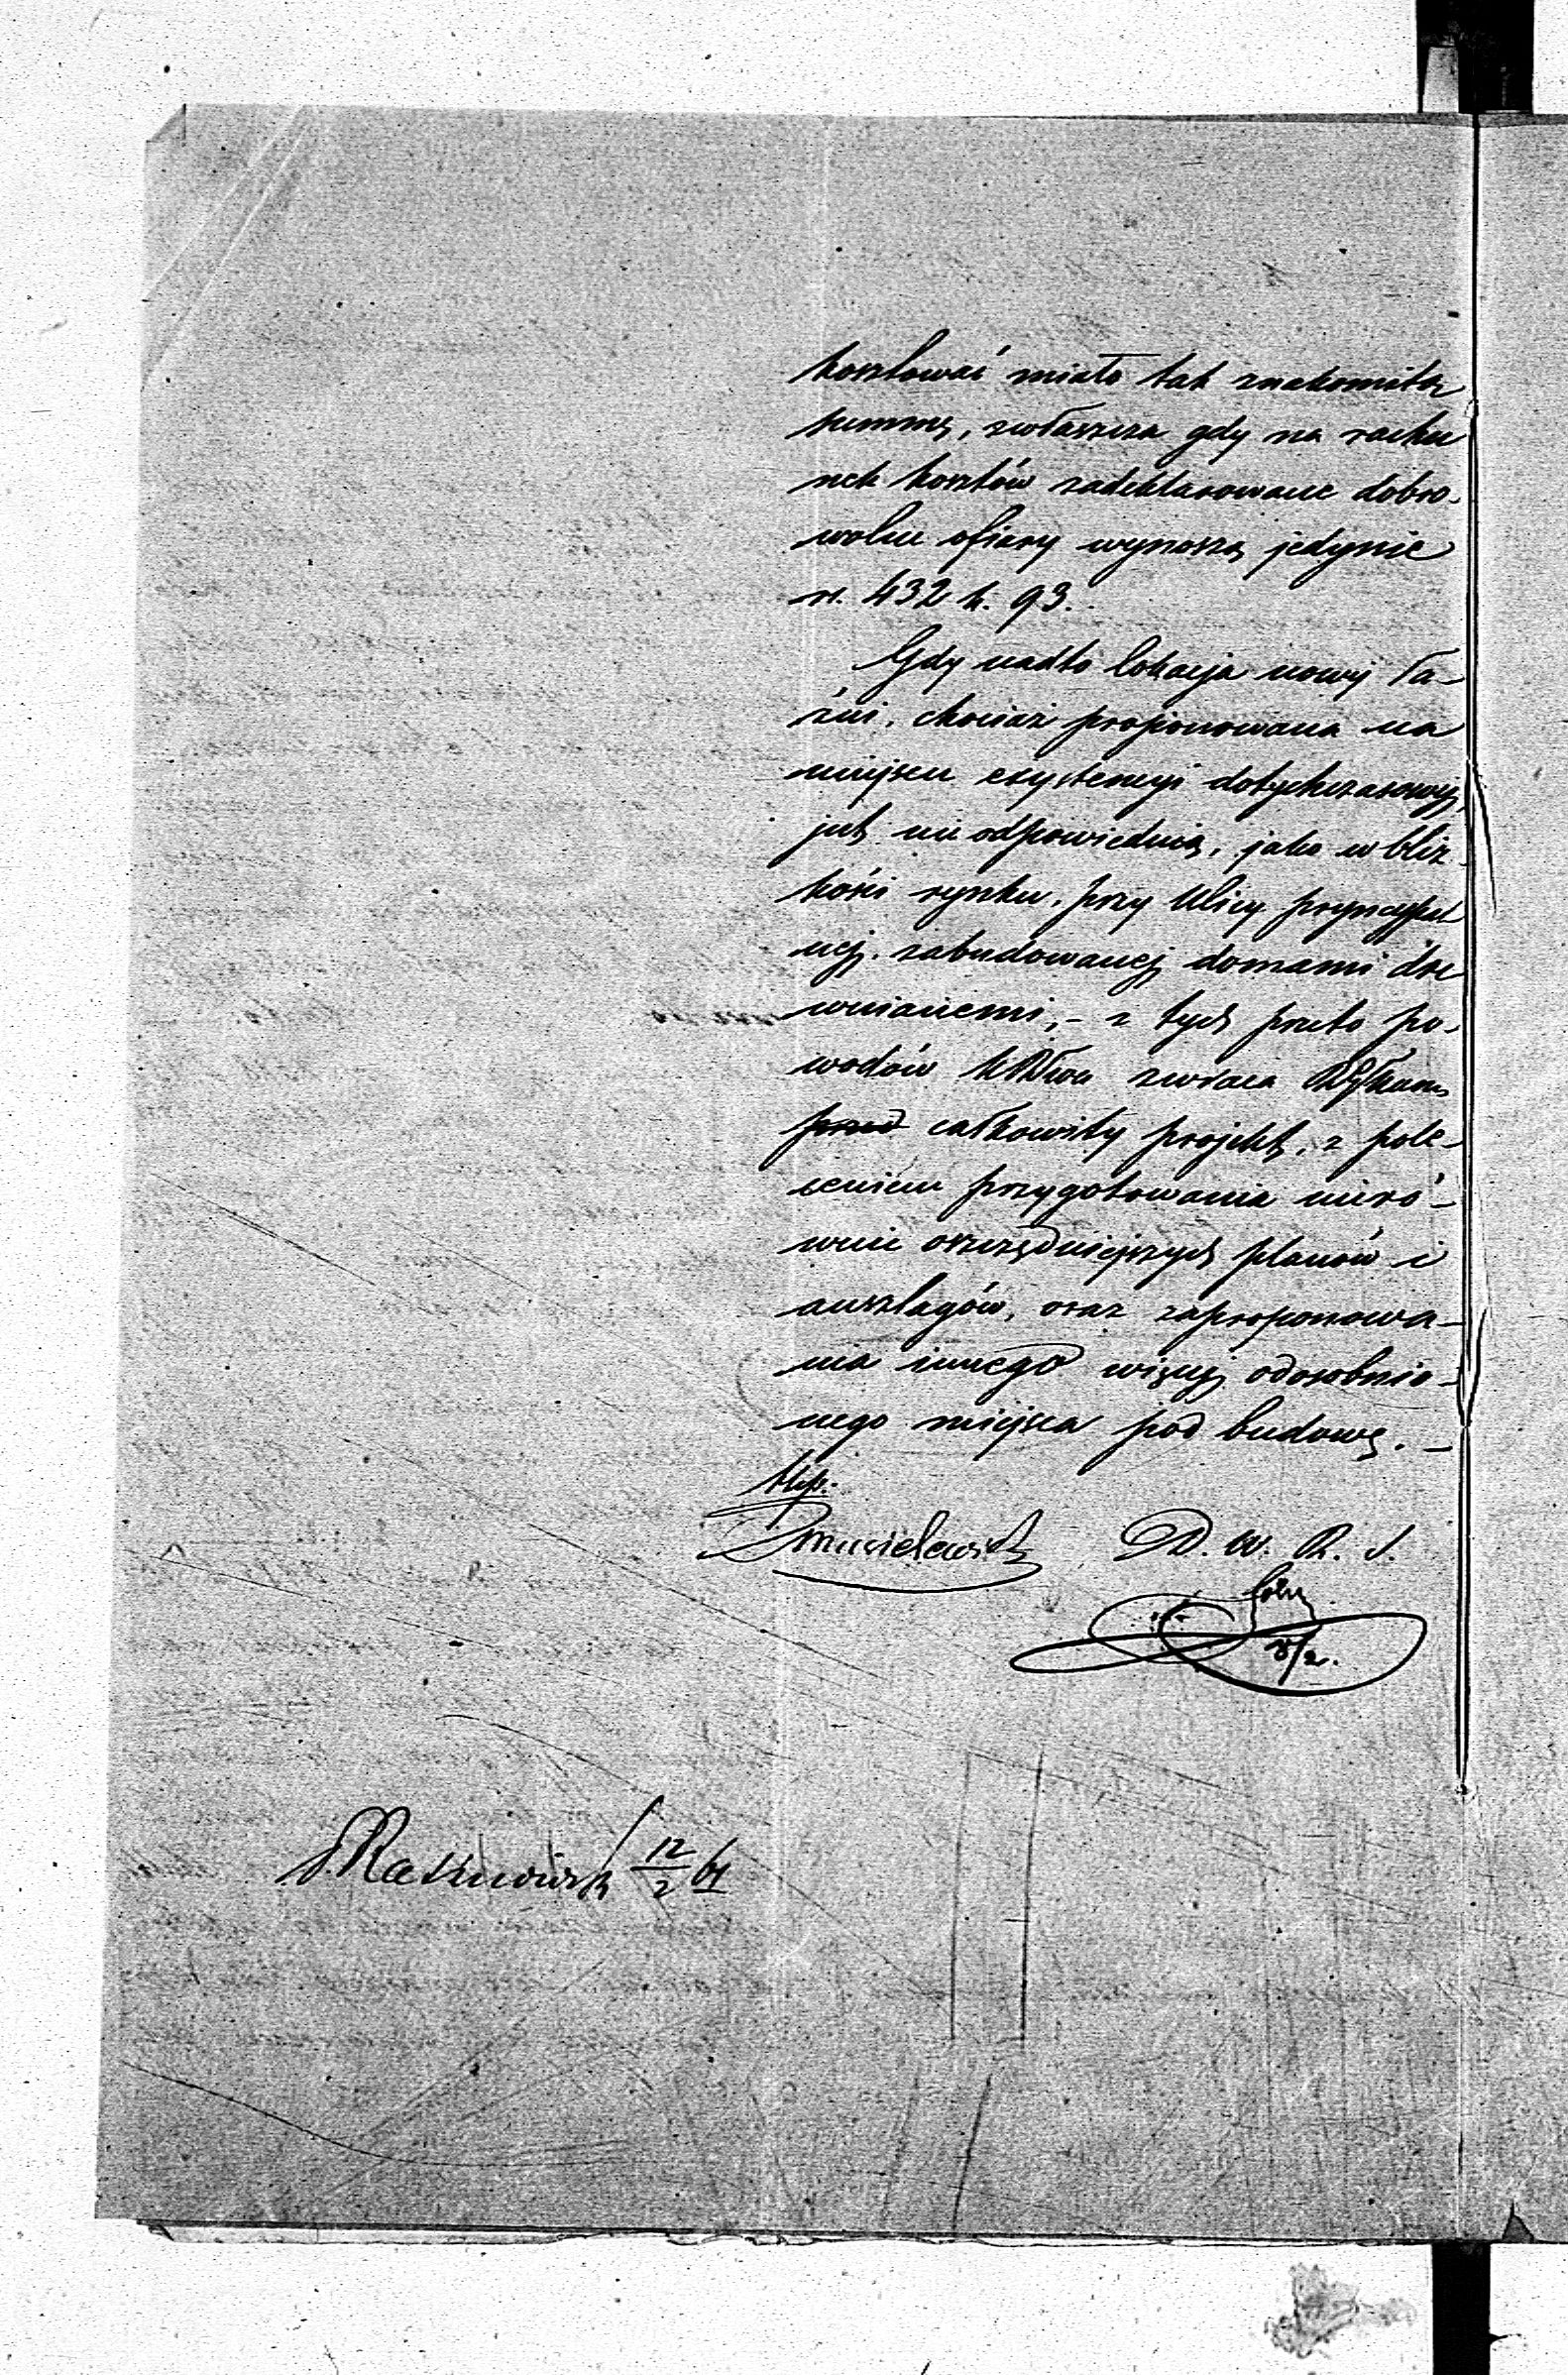 kosztować miało tak znakomitą
summę, zwłaszcza gdy na rachu
nek kosztów zadeklarowane dobro-
wolne ofiary wynoszą jedynie
rs. 432 k. 93.
Gdy nadto lokacja nowej ła-
źni, chociaż proponowana na
miejscu exystencyi dotychczasowej,
jest nie odpowiednią, jako w bliz
kości rynku, przy Ulicy pryncypal
nej, zabudowanej domami dre
wnianemi, – z tych przeto po-
wodów zwraca
całkowity projekt, z pole-
ceniem przygotowania nieró-
wnie oszczędniejszych planów i
anszlagów, oraz zaproponowa-
nia innego więcej odosobnio-
nego miejsca pod budowę. –
D. W. R. S.
12/2 61